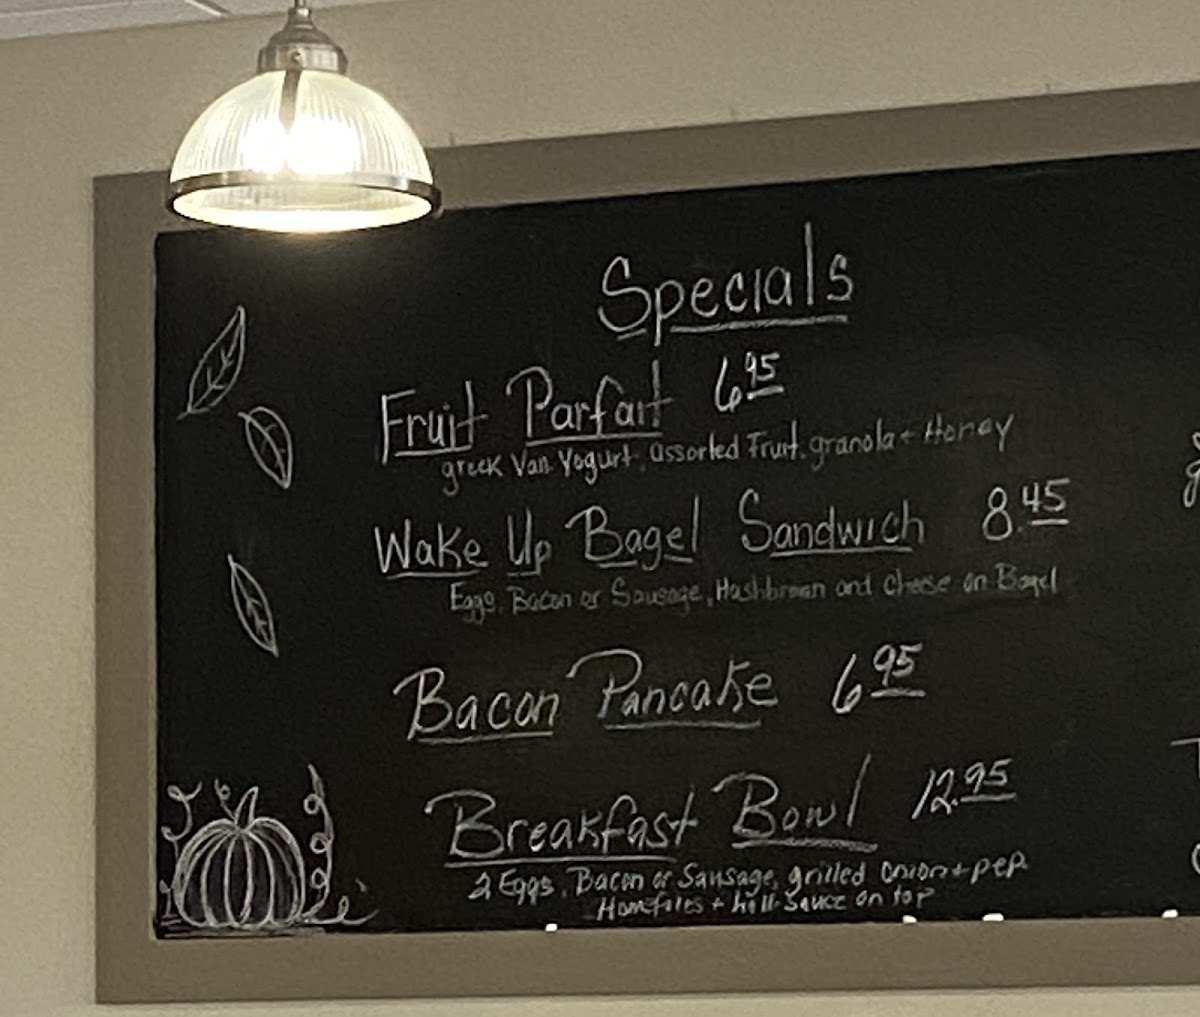 Specials
Fruit Parfait 6.95
greek Van Yogurt, assorted Fruit, granola + Honey
Wake Up Bagel Sandwich 8.45
Eggs, Bacon or Sausage, Hashbrown and cheese on Bagel
Bacon Pancake 6.95
Breakfast Bowl 12.95
2 Eggs, Bacon or Sausage, grilled onion + pep.
Homefries + holl. Sauce on top